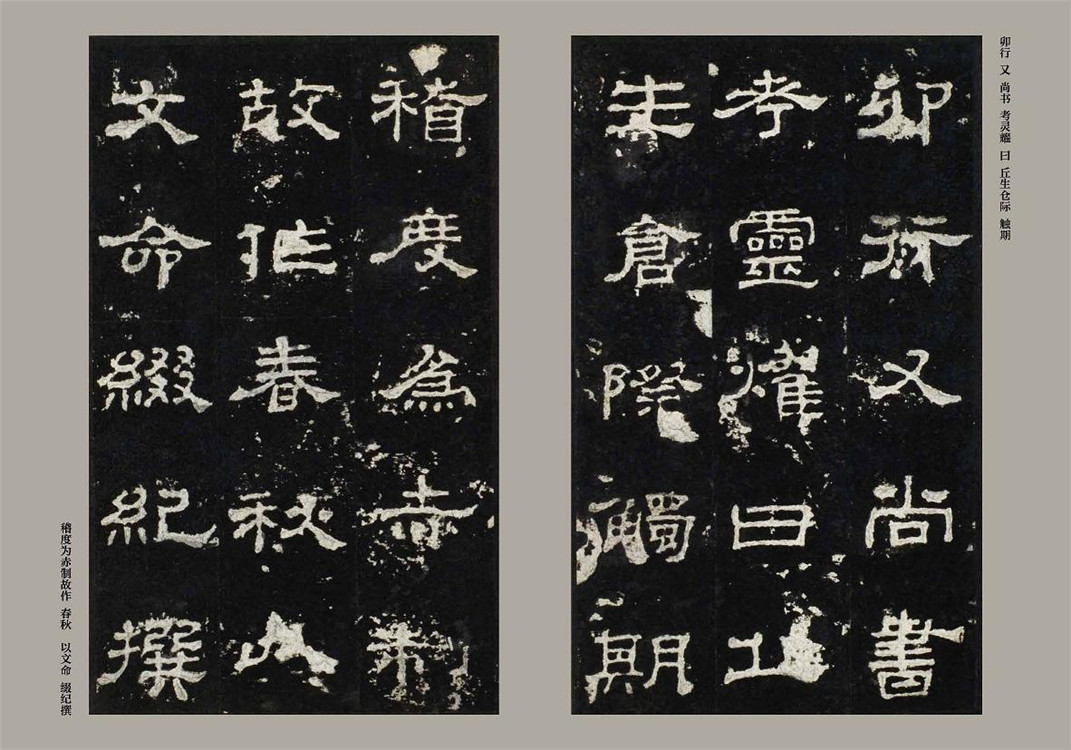 卯行 又 尚书 考灵燿 曰 丘生仓际 触期
卯行又尚書
考靈燿曰丘
生倉際觸期
稽度為赤制
故作春秋以
文命綴紀撰
稽度为赤制故作 春秋 以文命 缀纪撰